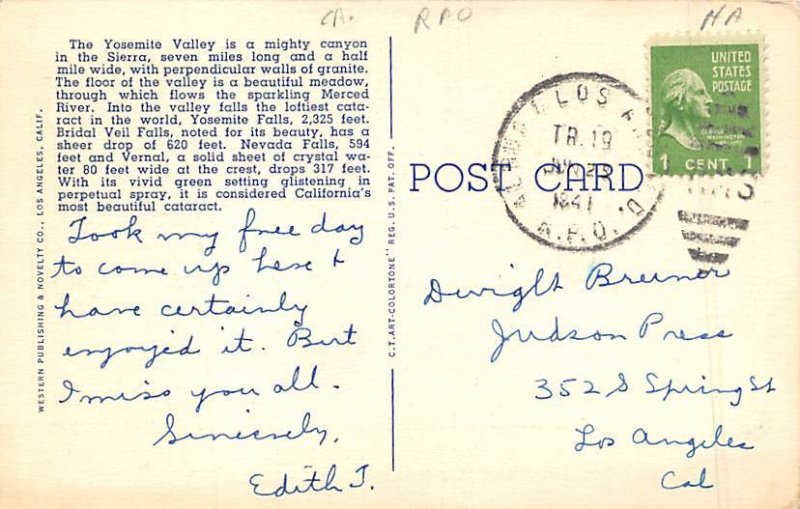 CA. RPO NA
The Yosemite Valley is a mighty canyon
in the Sierra, seven miles long and a half
mile wide, with perpendicular walls of granite.
The floor of the valley is a beautiful meadow,
through which flows the sparkling Merced
River. Into the valley falls the loftiest cata-
ract in the world, Yosemite Falls, 2,325 feet.
Bridal Veil Falls, noted for its beauty, has a
sheer drop of 620 feet. Nevada Falls, 594
feet and Vernal, a solid sheet of crystal wa-
ter 80 feet wide at the crest, drops 317 feet.
With its vivid green setting glistening in
perpetual spray, it is considered California's
most beautiful cataract.
Took my free day
to come up here &
have certainly
enjoyed it. But
I miss you all.
Sincerely,
Edith T.
WESTERN PUBLISHING & NOVELTY CO., LOS ANGELES, CALIF.
C.T. ART-COLORTONE" REG. U.S. PAT. OFF.
POST CARD
LOS
TR. 19
1941
R.P.O.
UNITED
STATES
POSTAGE
GEORGE
WASHINGTON
1 CENT 1
Dwight Breiner
Judson Press
352 S Spring St
Los Angeles
Cal